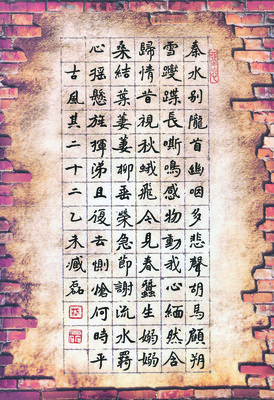 秦水別隴首幽咽多悲聲胡馬顧朔
雪躞蹀長嘶鳴感物動我心緬然含
歸情昔視秋蛾飛今見春蠶生嫋嫋
桑結葉萋萋柳垂榮急節謝流水羇
心摇懸旌揮涕且復去惻愴何時平
古風其二十二乙未臧磊